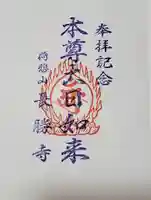 奉拝記念
本尊大日如来
長勝寺